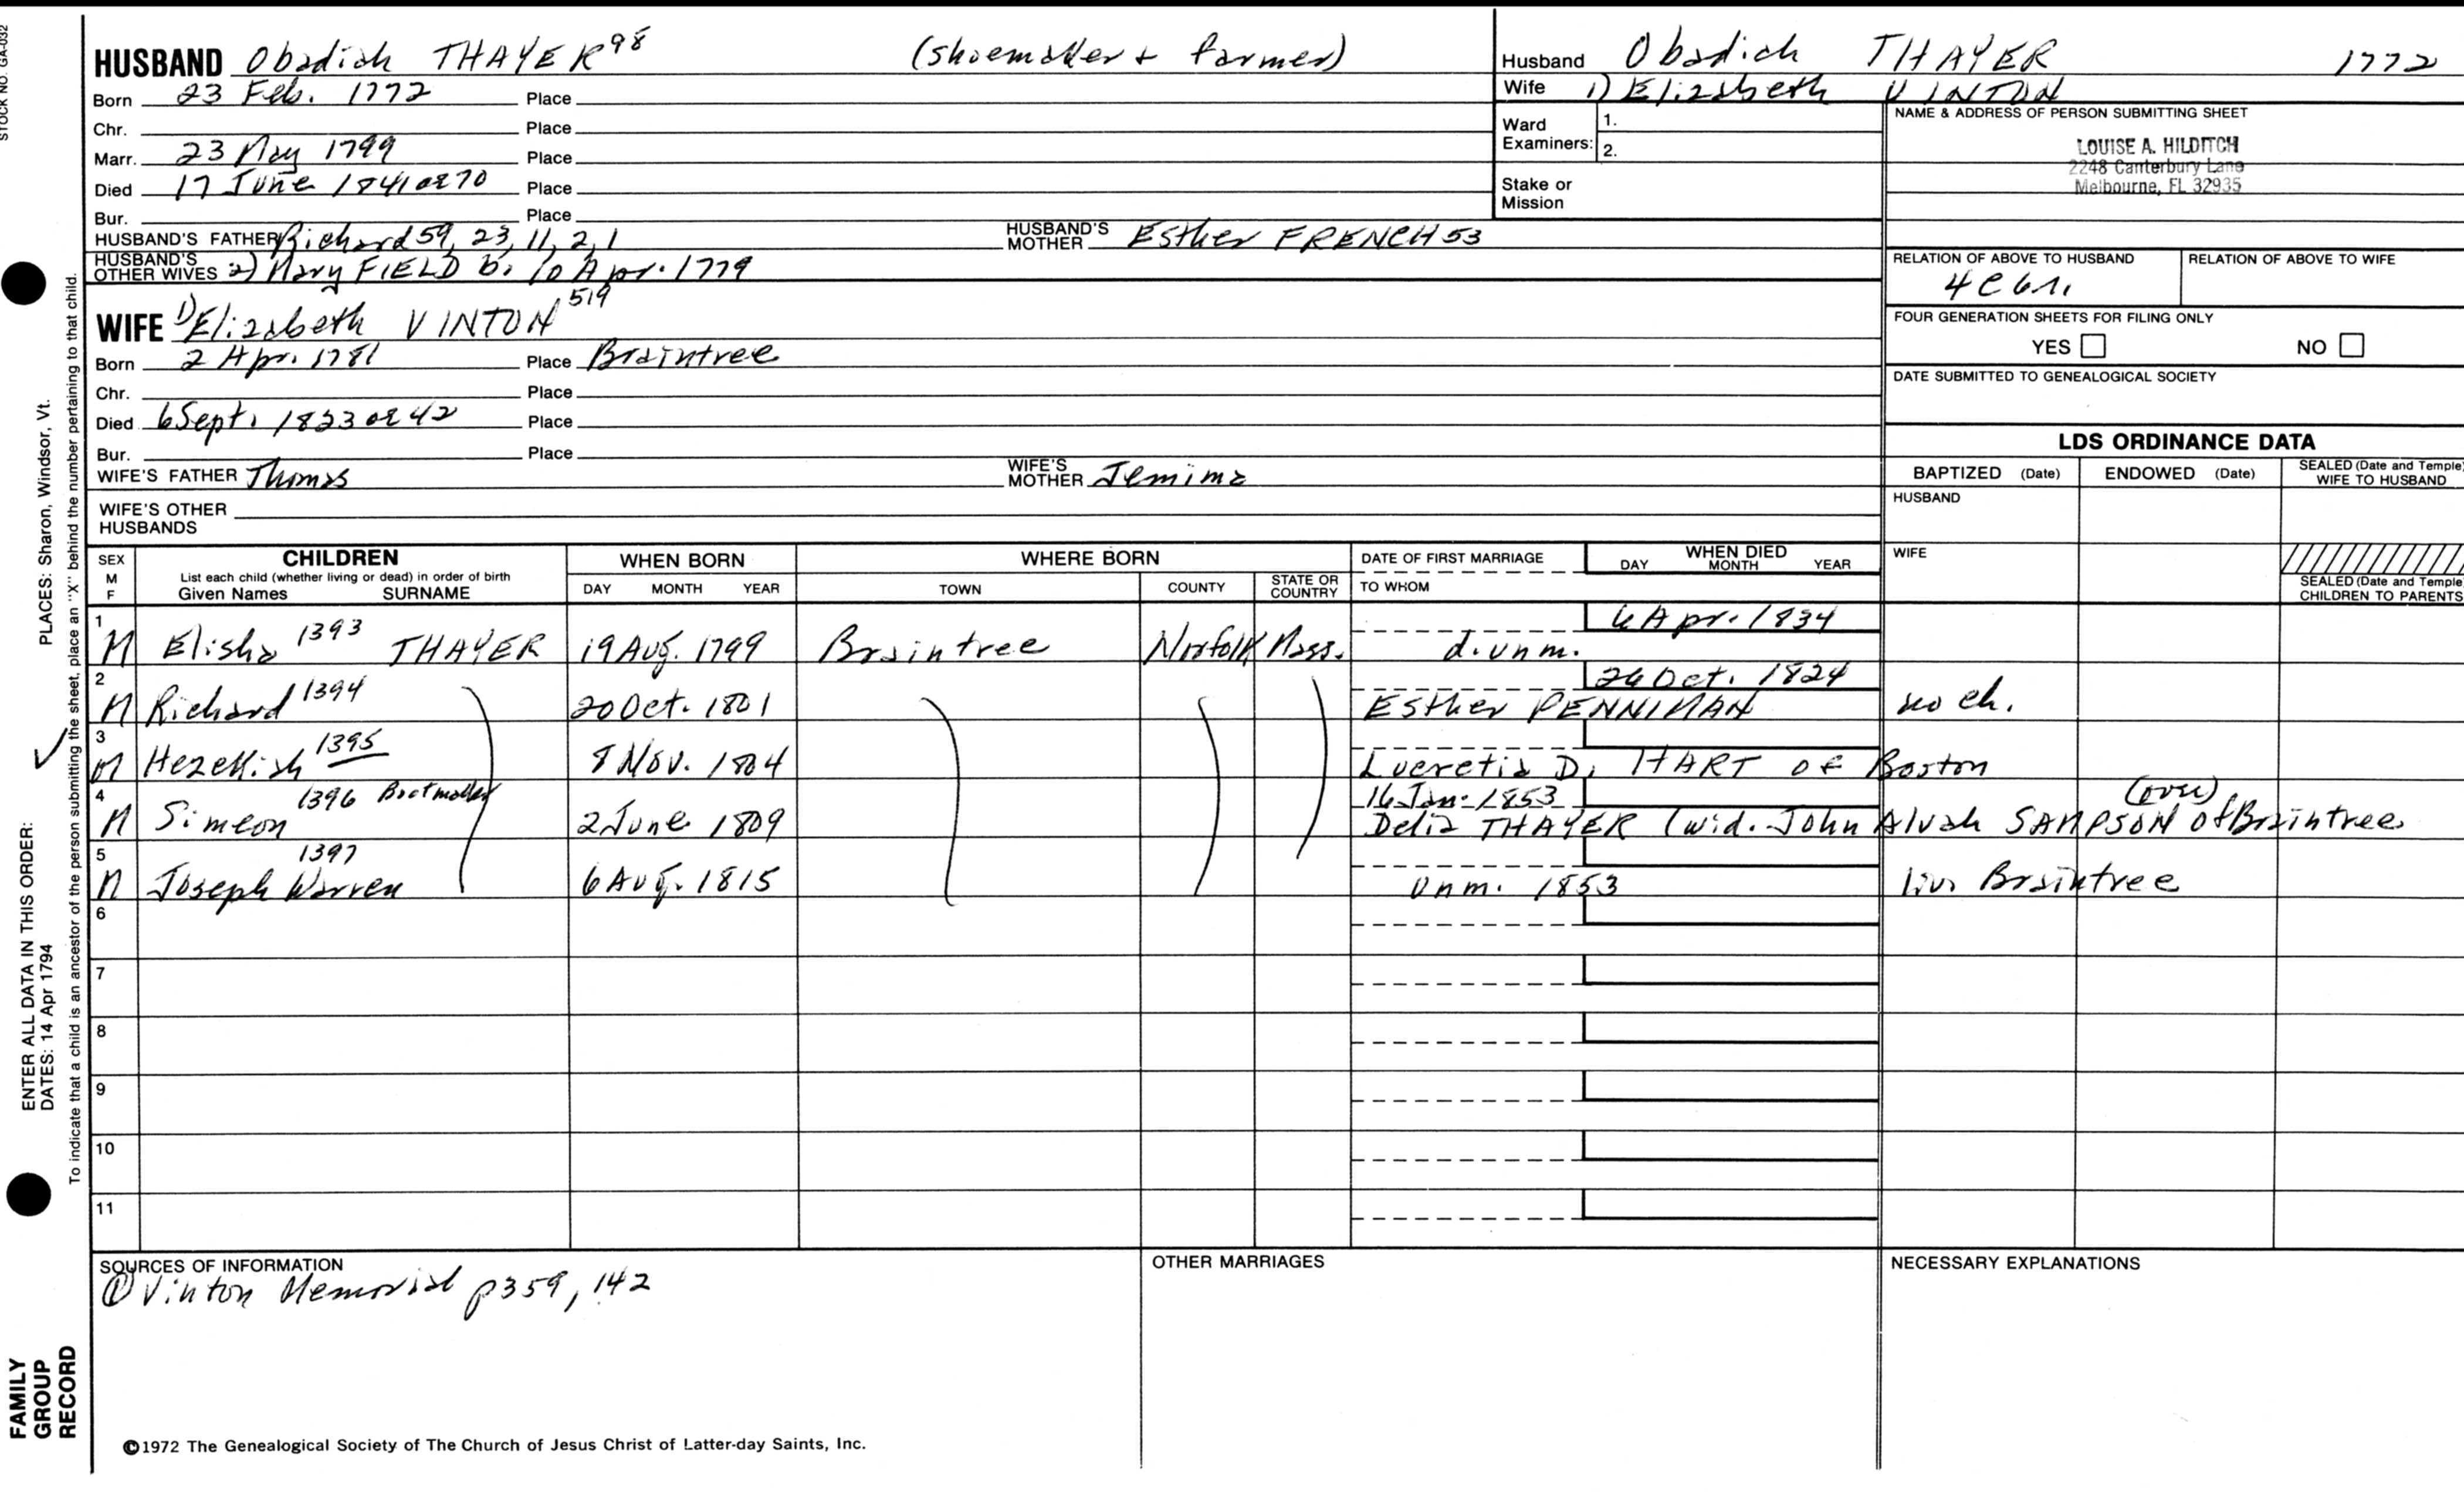 STOCK NO. GA-032
HUSBAND Obadiah THAYER 98 (shoemaker + farmer)
Born 23 Feb. 1772 Place
Chr. Place
Marr. 23 May 1799 Place
Died 17 June 1841 ae 70 Place
Bur. Place
HUSBAND'S FATHER Richard 59, 23, 11, 2, 1 HUSBAND'S MOTHER Esther FRENCH 53
HUSBAND'S OTHER WIVES 2) Mary FIELD b. 10 Apr. 1779
WIFE 1) Elizabeth VINTON 519
Born 2 Apr. 1781 Place Braintree
Chr. Place
Died 6 Sept. 1823 ae 42 Place
Bur. Place
WIFE'S FATHER Thomas WIFE'S MOTHER Jemima
WIFE'S OTHER HUSBANDS
Husband Obadiah THAYER 1772
Wife 1) Elizabeth VINTON
Ward Examiners: 1.
2.
Stake or Mission
NAME & ADDRESS OF PERSON SUBMITTING SHEET
LOUISE A. HILDITCH
2248 Canterbury Lane
Melbourne, FL 32935
RELATION OF ABOVE TO HUSBAND RELATION OF ABOVE TO WIFE
4C6r.
FOUR GENERATION SHEETS FOR FILING ONLY
YES NO
DATE SUBMITTED TO GENEALOGICAL SOCIETY
LDS ORDINANCE DATA
BAPTIZED (Date) ENDOWED (Date) SEALED (Date and Temple) WIFE TO HUSBAND
HUSBAND
WIFE
SEALED (Date and Temple) CHILDREN TO PARENTS
SEX M F CHILDREN WHEN BORN WHERE BORN DATE OF FIRST MARRIAGE WHEN DIED
List each child (whether living or dead) in order of birth
Given Names SURNAME DAY MONTH YEAR TOWN COUNTY STATE OR COUNTRY TO WHOM DAY MONTH YEAR
1 6 Apr. 1834
M Elisha 1393 THAYER 19 Aug. 1799 Braintree Norfolk Mass. d. unm.
2 26 Oct. 1824
M Richard 1394 20 Oct. 1801 Esther PENNIMAN no ch.
3
M Hezekiah 1395 8 Nov. 1804 Lucretia D. HART of Boston
4 1396 Bootmaker 16 Jan. 1853 (over)
M Simeon 2 June 1809 Delia THAYER (wid. John Alvah SAMPSON of Braintree
5 1397
M Joseph Warren 6 Aug. 1815 unm. 1853 liv. Braintree
6
7
8
9
10
11
SOURCES OF INFORMATION OTHER MARRIAGES NECESSARY EXPLANATIONS
① Vinton Memorial p359, 142
©1972 The Genealogical Society of The Church of Jesus Christ of Latter-day Saints, Inc.
FAMILY GROUP RECORD
ENTER ALL DATA IN THIS ORDER:
DATES: 14 Apr 1794 PLACES: Sharon, Windsor, Vt.
To indicate that a child is an ancestor of the person submitting the sheet, place an "X" behind the number pertaining to that child.